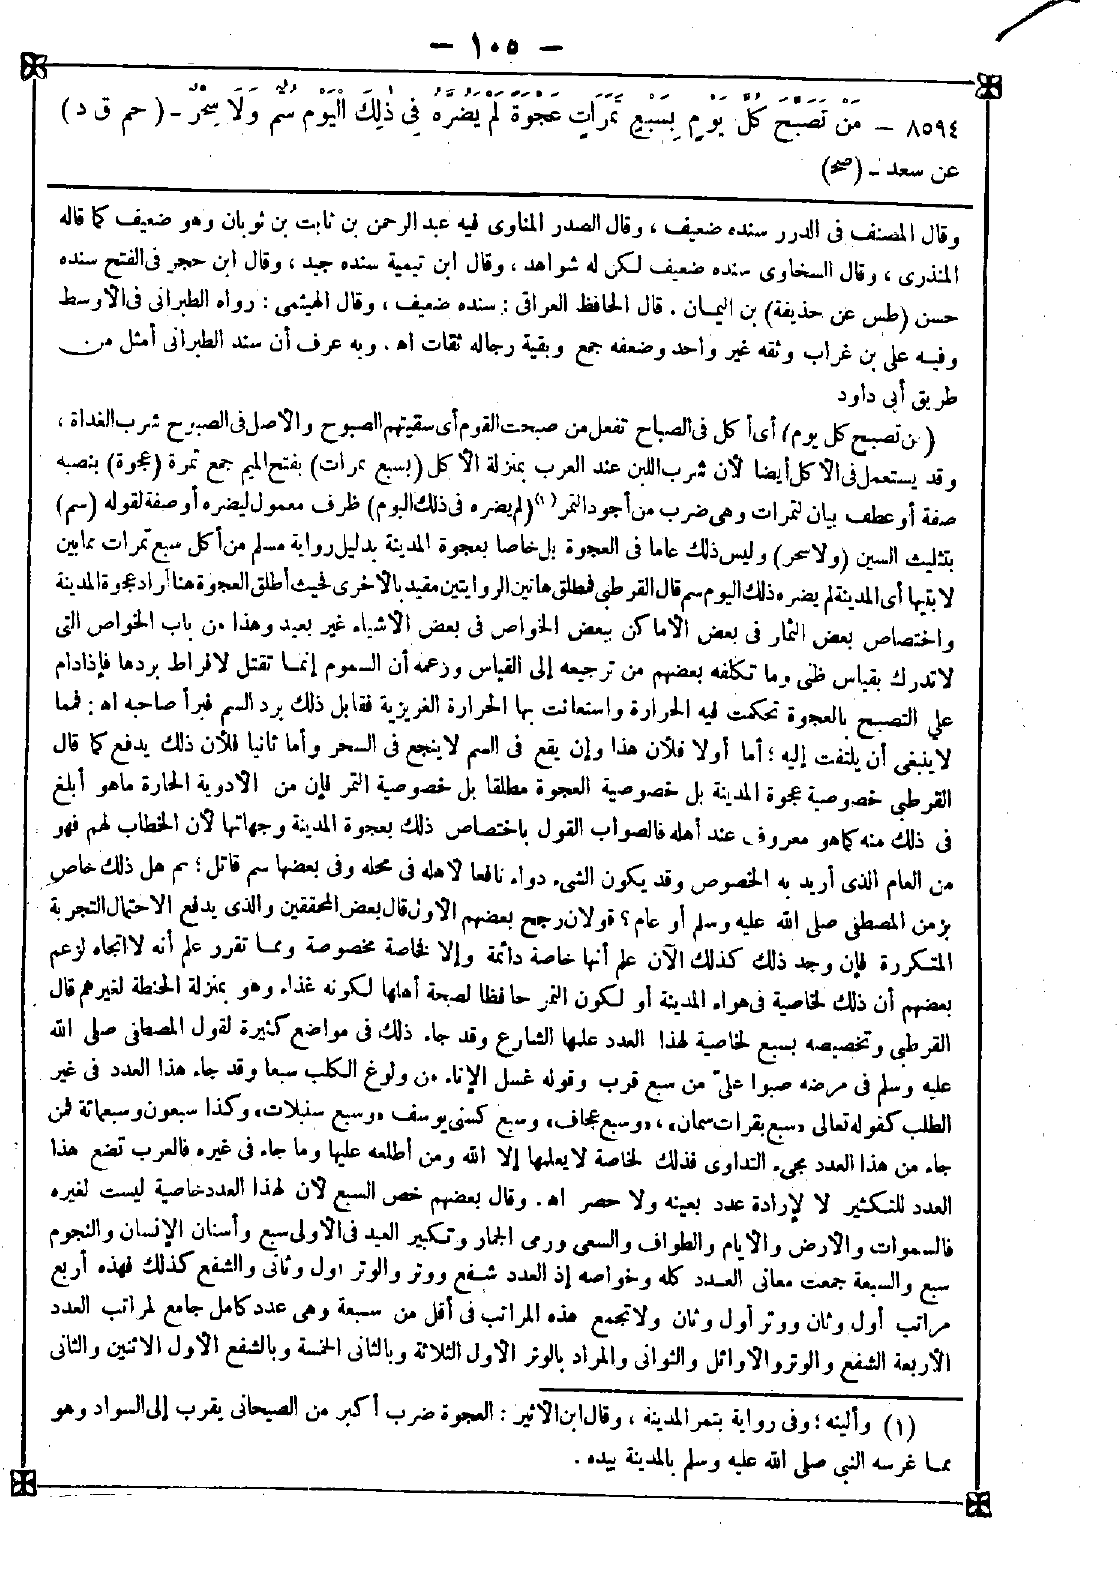 — ١٠٥ —
٨٥٩٤ — مَنْ تَصَبَّحَ كُلَّ يَوْمٍ بِسَبْعِ تَمَرَاتٍ عَجْوَةً لَمْ يَضُرَّهُ فِى ذٰلِكَ الْيَوْمِ سُمٌّ وَلَا سِحْرٌ - (حم ق د)
عن سعد - (صح)
وقال المصنف فى الدرر سنده ضعيف ، وقال الصدر المناوى فيه عبد الرحمن بن ثابت بن ثوبان وهو ضعيف كما قاله
المنذرى ، وقال السخاوى سنده ضعيف لكن له شواهد ، وقال ابن تيمية سنده جيد ، وقال ابن حجر فى الفتح سنده
حسن (طس عن حذيفة) بن اليمان . قال الحافظ العراقى : سنده ضعيف ، وقال الهيثمى : رواه الطبرانى فى الأوسط
وفيه على بن غراب وثقه غير واحد وضعفه جمع وبقية رجاله ثقات اه . وبه عرف أن سند الطبرانى أمثل من
طريق أبى داود
(من تصبح كل يوم) أى أكل فى الصباح تفعل من صبحت القوم أى سقيتهم الصبوح والأصل فى الصبوح شرب الغداة ،
وقد يستعمل فى الأكل أيضا لأن شرب اللبن عند العرب بمنزلة الأكل (بسبع تمرات) بفتح الميم جمع تمرة (عجوة) بنصبه
صفة أو عطف بيان لتمرات وهى ضرب من أجود التمر (١) (لم يضره فى ذلك اليوم) ظرف معمول ليضره أو صفة لقوله (سم)
بتثليث السين (ولا سحر) وليس ذلك عاما فى العجوة بل خاصا بعجوة المدينة بدليل رواية مسلم من أكل سبع تمرات مما بين
لابتيها أى المدينة لم يضره ذلك اليوم سم قال القرطبى فمطلق هاتين الروايتين مقيد بالأخرى فحيث أطلق العجوة هنا أراد عجوة المدينة
واختصاص بعض الثمار فى بعض الأماكن ببعض الخواص فى بعض الأشياء غير بعيد وهذا من باب الخواص التى
لا تدرك بقياس ظنى وما تكلفه بعضهم من ترجيعه إلى القياس وزعمه أن السموم إنما تقتل لافراط بردها فإذا دام
على التصبح بالعجوة تحكمت فيه الحرارة واستعانت بها الحرارة الغريزية فقابل ذلك برد السم فبرأ صاحبه اه : فمما
لا ينبغى أن يلتفت إليه ؛ أما أولا فلأن هذا وإن يقع فى السم لا ينجع فى السحر وأما ثانيا فلأن ذلك يدفع كما قال
القرطبى خصوصية عجوة المدينة بل خصوصية العجوة مطلقا بل خصوصية التمر فإن من الأدوية الحارة ما هو أبلغ
فى ذلك منه كما هو معروف عند أهله فالصواب القول باختصاص ذلك بعجوة المدينة وجهاتها لأن الخطاب لهم فهو
من العام الذى أريد به الخصوص وقد يكون الشىء دواء نافعا لأهله فى محله وفى بعضها سم قاتل ؛ ثم هل ذلك خاص
بزمن المصطفى صلى الله عليه وسلم أو عام ؟ قولان رجح بعضهم الأول قال بعض المحققين والذى يدفع الاحتمال التجربة
المتكررة فإن وجد ذلك كذلك الآن علم أنها خاصة دائمة وإلا فخاصة مخصوصة ومما تقرر علم أنه لا اتجاه لزعم
بعضهم أن ذلك لخاصية فى هواء المدينة أو لكون التمر حافظا لصحة أهلها لكونه غذاء وهو بمنزلة الحنطة لغيرهم قال
القرطبى وتخصيصه بسبع لخاصية لهذا العدد علمها الشارع وقد جاء ذلك فى مواضع كثيرة لقول المصطفى صلى الله
عليه وسلم فى مرضه صبوا علىّ من سبع قرب وقوله غسل الإناء من ولوغ الكلب سبعا وقد جاء هذا العدد فى غير
الطلب كقوله تعالى «سبع بقرات سمان» ، «وسبع عجاف» وسبع كسنى يوسف «وسبع سنبلات» وكذا سبعون وسبعمائة فمن
جاء من هذا العدد مجىء التداوى فذلك لخاصة لا يعلمها إلا الله ومن أطلعه عليها وما جاء فى غيره فالعرب تضع هذا
العدد للتكثير لا لإرادة عدد بعينه ولا حصر اه . وقال بعضهم خص السبع لأن لهذا العدد خاصية ليست لغيره
فالسموات والأرض والأيام والطواف والسعى ورمى الجمار وتكبير العيد فى الأولى سبع وأسنان الإنسان والنجوم
سبع والسبعة جمعت معانى العدد كله وخواصه إذ العدد شفع ووتر والوتر أول وثانى والشفع كذلك فهذه أربع
مراتب أول وثان ووتر أول وثان ولا تجمع هذه المراتب فى أقل من سبعة وهى عدد كامل جامع لمراتب العدد
الأربعة الشفع والوتر والأوائل والثوانى والمراد بالوتر الأول الثلاثة وبالثانى الخمسة وبالشفع الأول الاثنين والثانى
(١) وألينه ؛ وفى رواية بتمر المدينة ، وقال ابن الأثير : العجوة ضرب أكبر من الصيحانى يقرب إلى السواد وهو
مما غرسه النبى صلى الله عليه وسلم بالمدينة بيده .